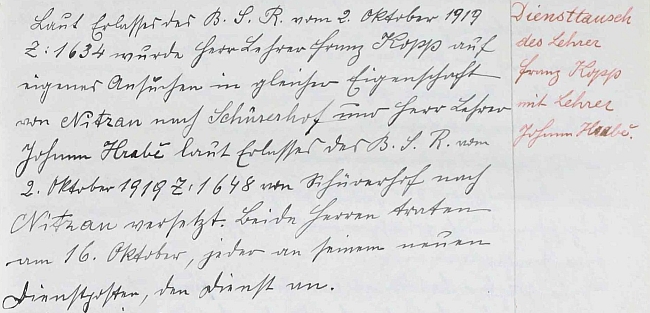 Laut Erlasses des B. S. R. vom 2. Oktober 1919
Z: 1634 wurde Herr Lehrer Franz Kopp auf
eigenes Ansuchen in gleicher Eigenschaft
von Nitzau nach Schürerhof und Herr Lehrer
Johann Hrabě laut Erlasses des B. S. R. vom
2. Oktober 1919 Z: 1648 von Schürerhof nach
Nitzau versetzt. Beide Herren traten
am 16. Oktober, jeder an seinem neuen
Dienstposten, den Dienst an.
Diensttausch
des Lehrer
Franz Kopp
mit Lehrer
Johann Hrabě.